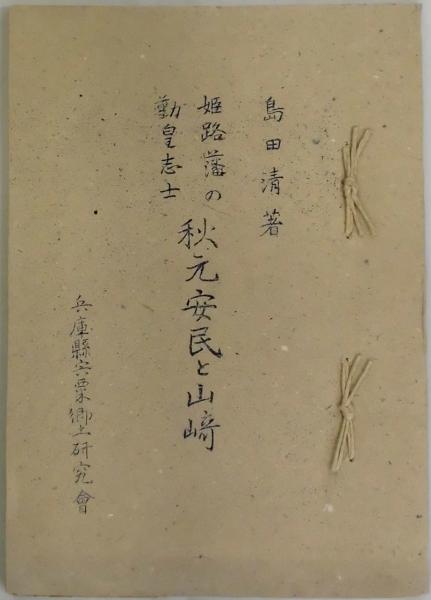 島田清著
姫路藩の
勤皇志士
秋元安民と山崎
兵庫縣宍粟郷土研究會